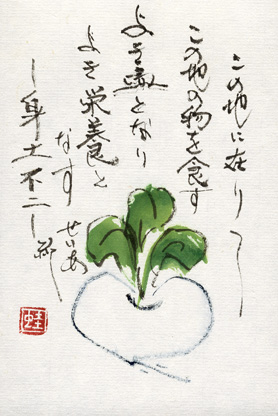 この地に在りて
この地の物を食す
よき歯となり
よき栄養と
なす
―身土不二―
せいあ